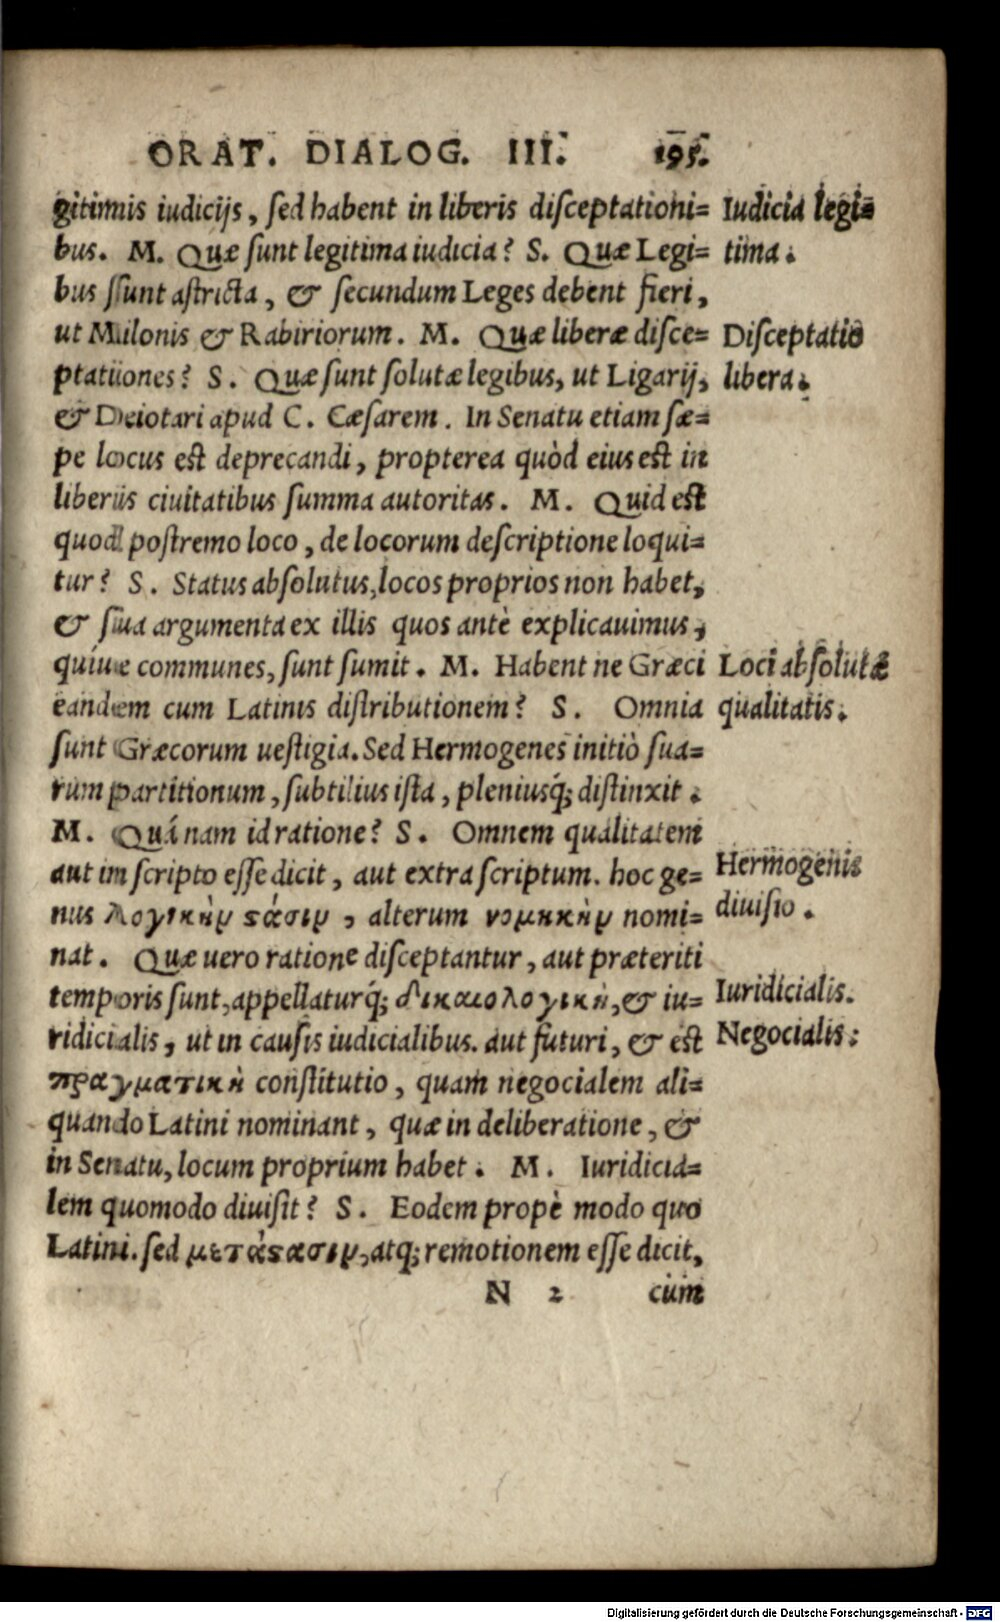 ORAT. DIALOG. III. 195.
gitimis iudicijs, sed habent in liberis disceptationi=
bus. M. Quæ sunt legitima iudicia? S. Quæ Legi=
bus sunt astricta, & secundum Leges debent fieri,
ut Milonis & Rabiriorum. M. Quæ liberæ disce=
ptationes? S. Quæ sunt solutæ legibus, ut Ligarij,
& Deiotari apud C. Cæsarem. In Senatu etiam sæ=
pe locus est deprecandi, propterea quòd eius est in
liberis ciuitatibus summa autoritas. M. Quid est
quod postremo loco, de locorum descriptione loqui=
tur? S. Status absolutus, locos proprios non habet,
& sua argumenta ex illis quos antè explicauimus,
quiue communes, sunt sumit. M. Habent ne Græci
eandem cum Latinis distributionem? S. Omnia
sunt Græcorum uestigia. Sed Hermogenes initiò sua=
rum partitionum, subtilius ista, pleniusq́; distinxit.
M. Quánam id ratione? S. Omnem qualitatem
aut in scripto esse dicit, aut extra scriptum. hoc ge=
nus λογικὴν ϛάσιν, alterum νομηκὴν nomi=
nat. Quæ uero ratione disceptantur, aut præteriti
temporis sunt, appellaturq́; δικαιολογικὴ, & iu=
ridicialis, ut in causis iudicialibus. aut futuri, & est
πραγματικὴ constitutio, quam negocialem ali=
quando Latini nominant, quæ in deliberatione, &
in Senatu, locum proprium habet. M. Iuridicia=
lem quomodo diuisit? S. Eodem propè modo quo
Latini. sed μετάϛασιν, atq; remotionem esse dicit,
N 2 cùm
Iudicia legi=
tima.
Disceptatio
libera.
Loci absolutæ
qualitatis.
Hermogenis
diuisio.
Iuridicialis.
Negocialis.
Digitalisierung gefördert durch die Deutsche Forschungsgemeinschaft - DFG